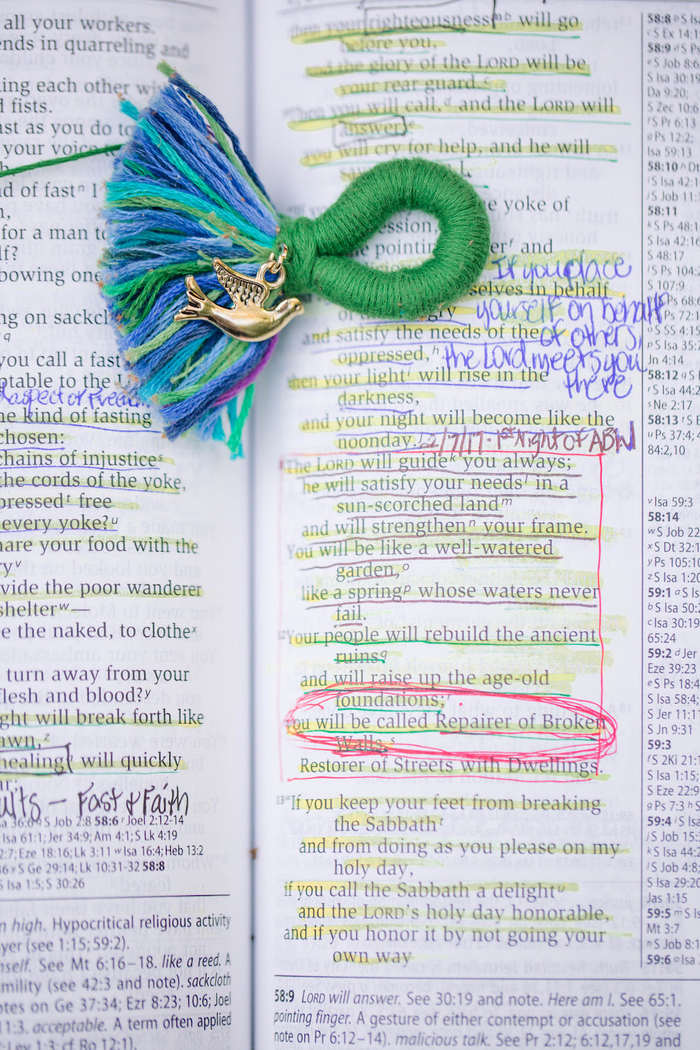 all your workers.
ends in quarreling and
ing each other wi
d fists.
ast as you do to
your voice
d of fastⁿ
for a man to
f?
bowing one
ng on sackcl
you call a fast
ptable to the
he kind of fasting
chosen:
chains of injusticeˢ
the cords of the yoke,
pressedᵗ free
every yoke?ᵘ
hare your food with the
ryᵛ
vide the poor wanderer
shelterʷ—
e the naked, to clotheˣ
turn away from your
flesh and blood?ʸ
ght will break forth like
awn,ᶻ
healing will quickly
Fast & Faith
S Job 2:8 58:6 ʳ Joel 2:12-14
Isa 61:1; Jer 34:9; Am 4:1; S Lk 4:19
2:7; Eze 18:16; Lk 3:11 ʷ Isa 16:4; Heb 13:2
S Ge 29:14; Lk 10:31-32 58:8
S Isa 1:5; S 30:26
n high. Hypocritical religious activity
yer (see 1:15; 59:2).
mself. See Mt 6:16–18. like a reed. A
mility (see 42:3 and note). sackcloth
otes on Ge 37:34; Ezr 8:23; 10:6; Joel
11:3. acceptable. A term often applied
Lev 1:3; cf Ro 12:1).
then your righteousness will go
before you,
and the glory of the LORD will be
your rear guard.ᶜ
Then you will call,ᵈ and the LORD will
answer
you will cry for help, and he will
yoke of
ession,
pointing and
selves in behalf
If you place
yourself on behalf
of others,
the Lord meets you
there
and satisfy the needs of the
oppressed,ʰ
then your light will rise in the
darkness,
and your night will become like the
noonday.
12/7/17 · 1st night of ABW
The LORD will guideᵏ you always;
he will satisfy your needs in a
sun-scorched landᵐ
and will strengthenⁿ your frame.
You will be like a well-watered
garden,ᵒ
like a springᵖ whose waters never
fail.
¹²Your people will rebuild the ancient
ruinsᑫ
and will raise up the age-old
foundations;ʳ
you will be called Repairer of Broken
Walls,ˢ
Restorer of Streets with Dwellings.
¹³"If you keep your feet from breaking
the Sabbathᵗ
and from doing as you please on my
holy day,
if you call the Sabbath a delightᵘ
and the LORD's holy day honorable,
and if you honor it by not going your
own way
58:9 LORD will answer. See 30:19 and note. Here am I. See 65:1.
pointing finger. A gesture of either contempt or accusation (see
note on Pr 6:12–14). malicious talk. See Pr 2:12; 6:12,17,19 and
58:8
Ex 14:1
58:9 ᵈ S Ps
S Job 8:6
S Isa 30:19
Da 9:20;
S Zec 10:6
Pr 6:13
Ps 12:2
Isa 59:13
58:10 ʰ Dt
S Isa 42:1
S Job 11:
58:11
S Ps 48:1
S Isa 42:1
S 48:17
S Ps 104
S 107:9
Ps 68
S Ps 72:1
S SS 4:1
S Isa 35:
Jn 4:14
58:12
S Isa 44:2
S Ne 2:17
58:13
Ps 37:4
84:2,10
ᵛ Isa 59:3
58:14
ʷ S Job 22
ˣ S Dt 32:1
ʸ Ps 105:10
ᶻ S Isa 1:20
59:1 ᵃ S Is
ᵇ S Isa 50:
ᶜ Isa 30:19
65:24
59:2 ᵈ Jer
Eze 39:23
ᵉ S Ps 18:4
S Isa 58:4;
S Jer 11:1
S Jn 9:31
59:3
S 2Ki 21:1
S Isa 1:15;
S Eze 22:9
S Ps 7:3
59:4 ⁱ S Isa
S Job 15:
S Isa 44:2
S Job 4:8;
S Isa 29:20
Jas 1:15
59:5 ᵐ S
Mt 3:7
ⁿ S Job 8:1
59:6 ᵒ Isa